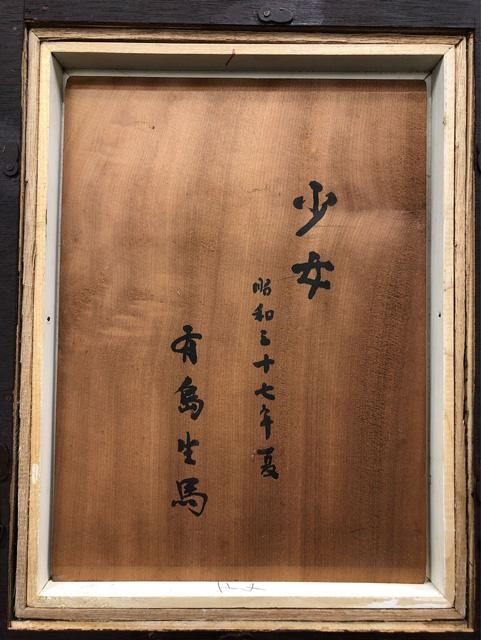 少女
昭和三十七年夏
有島生馬